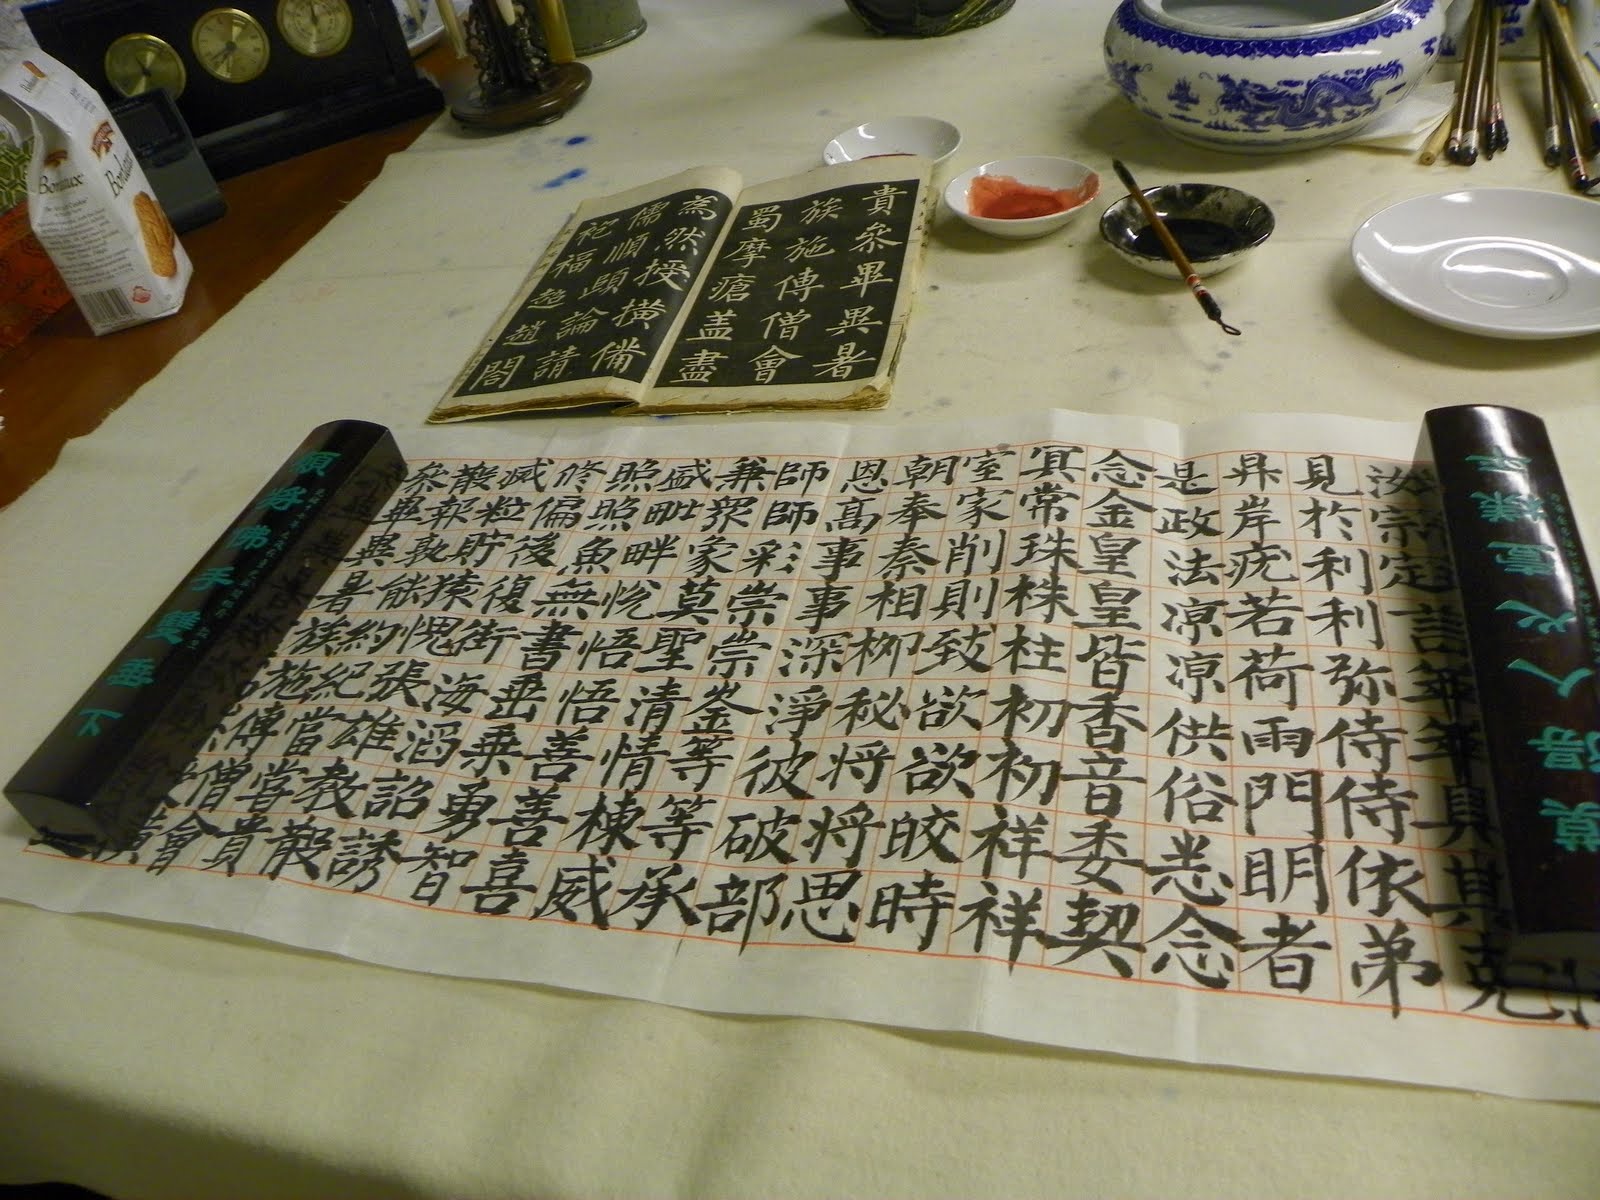 Bordeaux
Bordeaux
貴叅畢異暑
族施傳僧會
蜀摩瘡盖盡
為然授横備
儒順顕論請
祀福趙閤
願將佛手雙垂下
摸得人心壹樣平
汝宗定
見於利利弥侍侍依弟
昇岸疣若荷雨門明者
是政法凉凉供俗恙念
念金皇皇皆香音委契
冥常珠株柱初初祥祥
室家削則致欲欲皎時
朝奉秦相柳秘将将思
恩髙事事深淨彼破部
師師彩崇崇釜等等承
兼眾象莫聖清情棟威
盛毗畔悅悟悟善善喜
照照魚無書垂乗勇智
修偏後復衛海滔詔誘
滅粒貯猿愧張雄教散
散報敦能約紀當嘗貴
叅畢異暑族施傳僧會